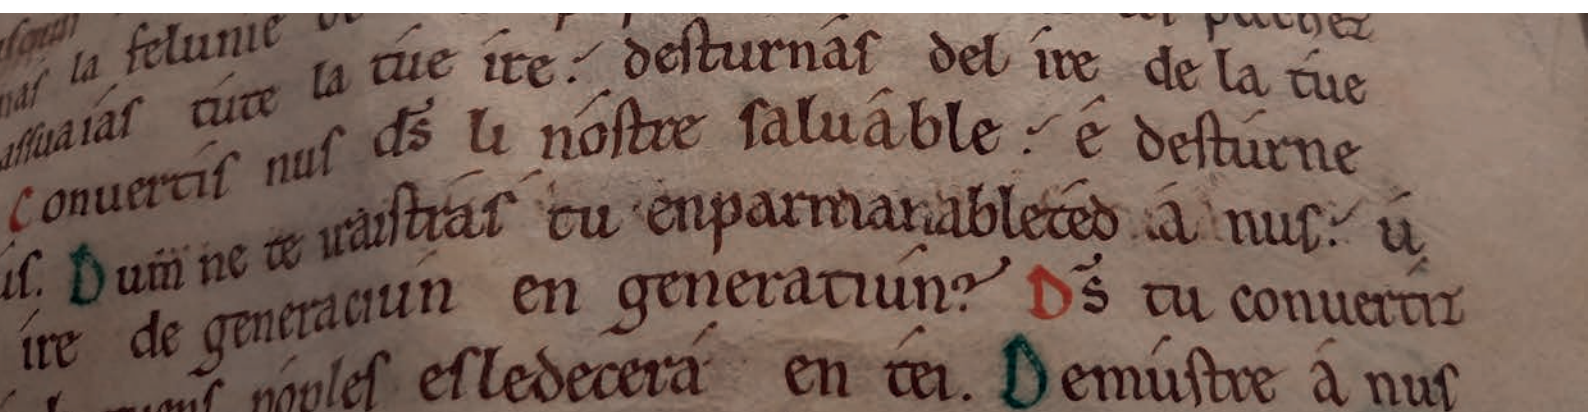 pechez
la felunie
assuaiás túte la túe íre: desturnás del íre de la túe
Conuertís nus ds̃ li nóstre saluáble: é destúrne
Dum̃ ne te iraistrás tu enparmanabletéd á nus: ú
íre de generaciún en generatiún? Ds̃ tu conuertíz
póples esledecerá en téi. Demústre á nus